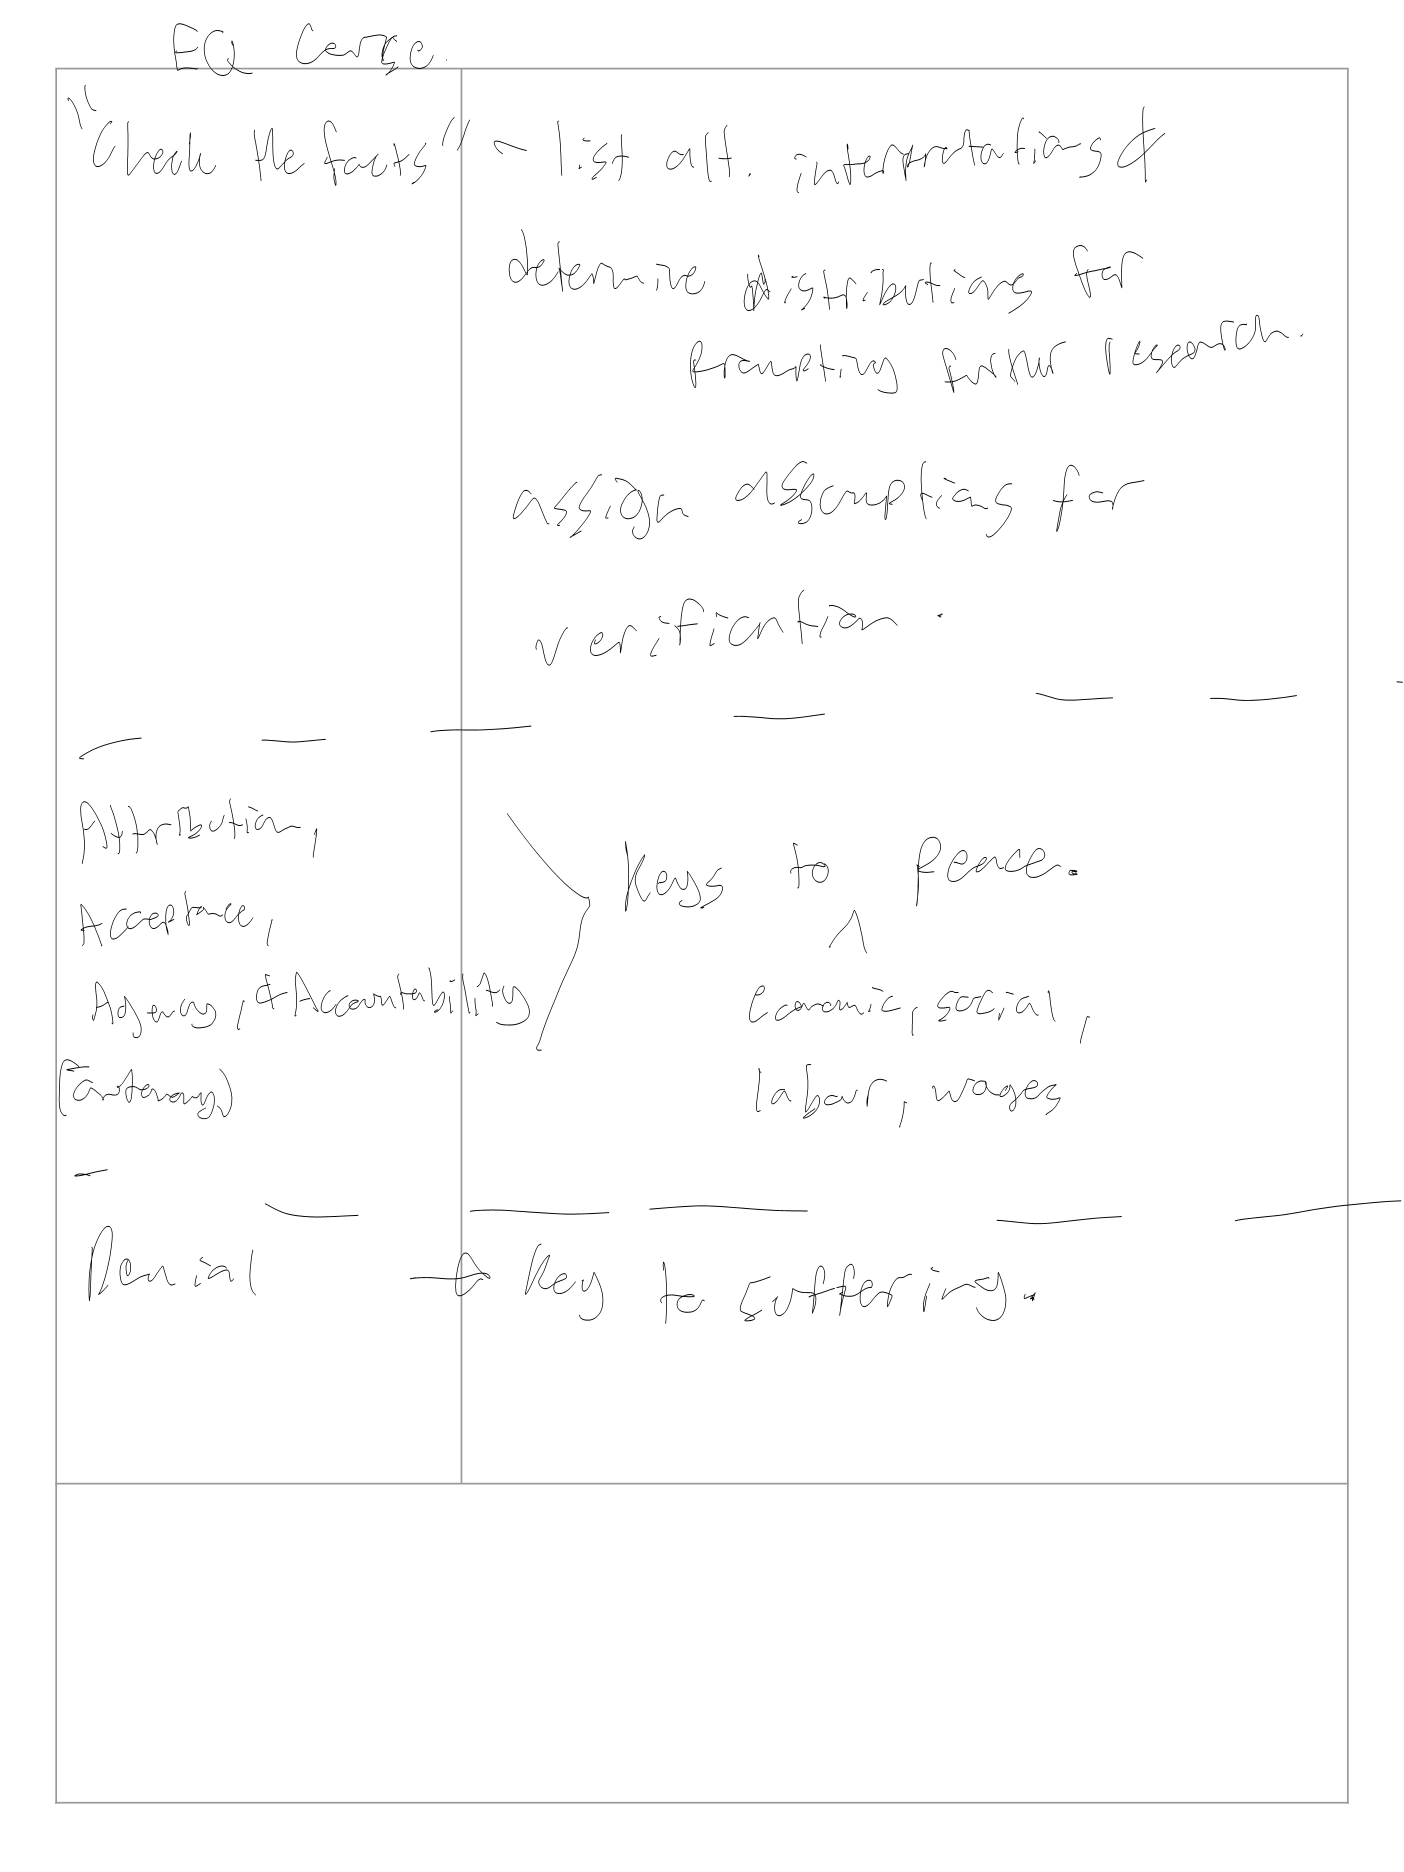 EQ Course.
"Check the facts" ~ list alt. interpretations &
determine distributions for
Prompting further research.
assign assumptions for
verification.
Attribution,
Acceptance,
Agency, & Accountability
(autonomy)
Keys to Peace.
^
economic, social,
labour, wages
Denial → Key to suffering.